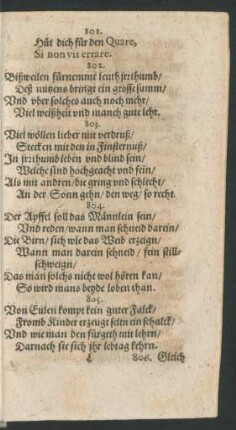 801.
Hüt dich für den Quare,
Si non vis errare.
802.
Bißweilen fürnemmr leuth jrrthumb/
Deß nutzens bringt ein grosse summ/
Vnd vber solches auch noch mehr/
Viel weißheit vnd manch gute lehr.
803.
Viel wöllen lieber mit verdruß/
Stecken mit den in Finsternuß/
In jrrthumb leben vnd blind sein/
Welche sind hochgeacht vnd fein/
Als mit andren/die gring vnd schlecht/
An der Sonn gehn/den weg/so recht.
804.
Der Apffel soll das Männlein sein/
Vnd reden/wann man schneid darein/
Die Birn/sich wie das Weib erzeign/
Wann man darein schneid/ fein still-
schweign/
Das man solchs nicht wol hören kan/
So wird mans beyde loben than.
805.
Von Eulen kompt kein guter Falck/
Fromb Kinder erzeugt selten ein schalck/
Vnd wie man den fürgeth mit lehrn/
Darnach sie sich jhr lebtag kehrn.
806. Gleich